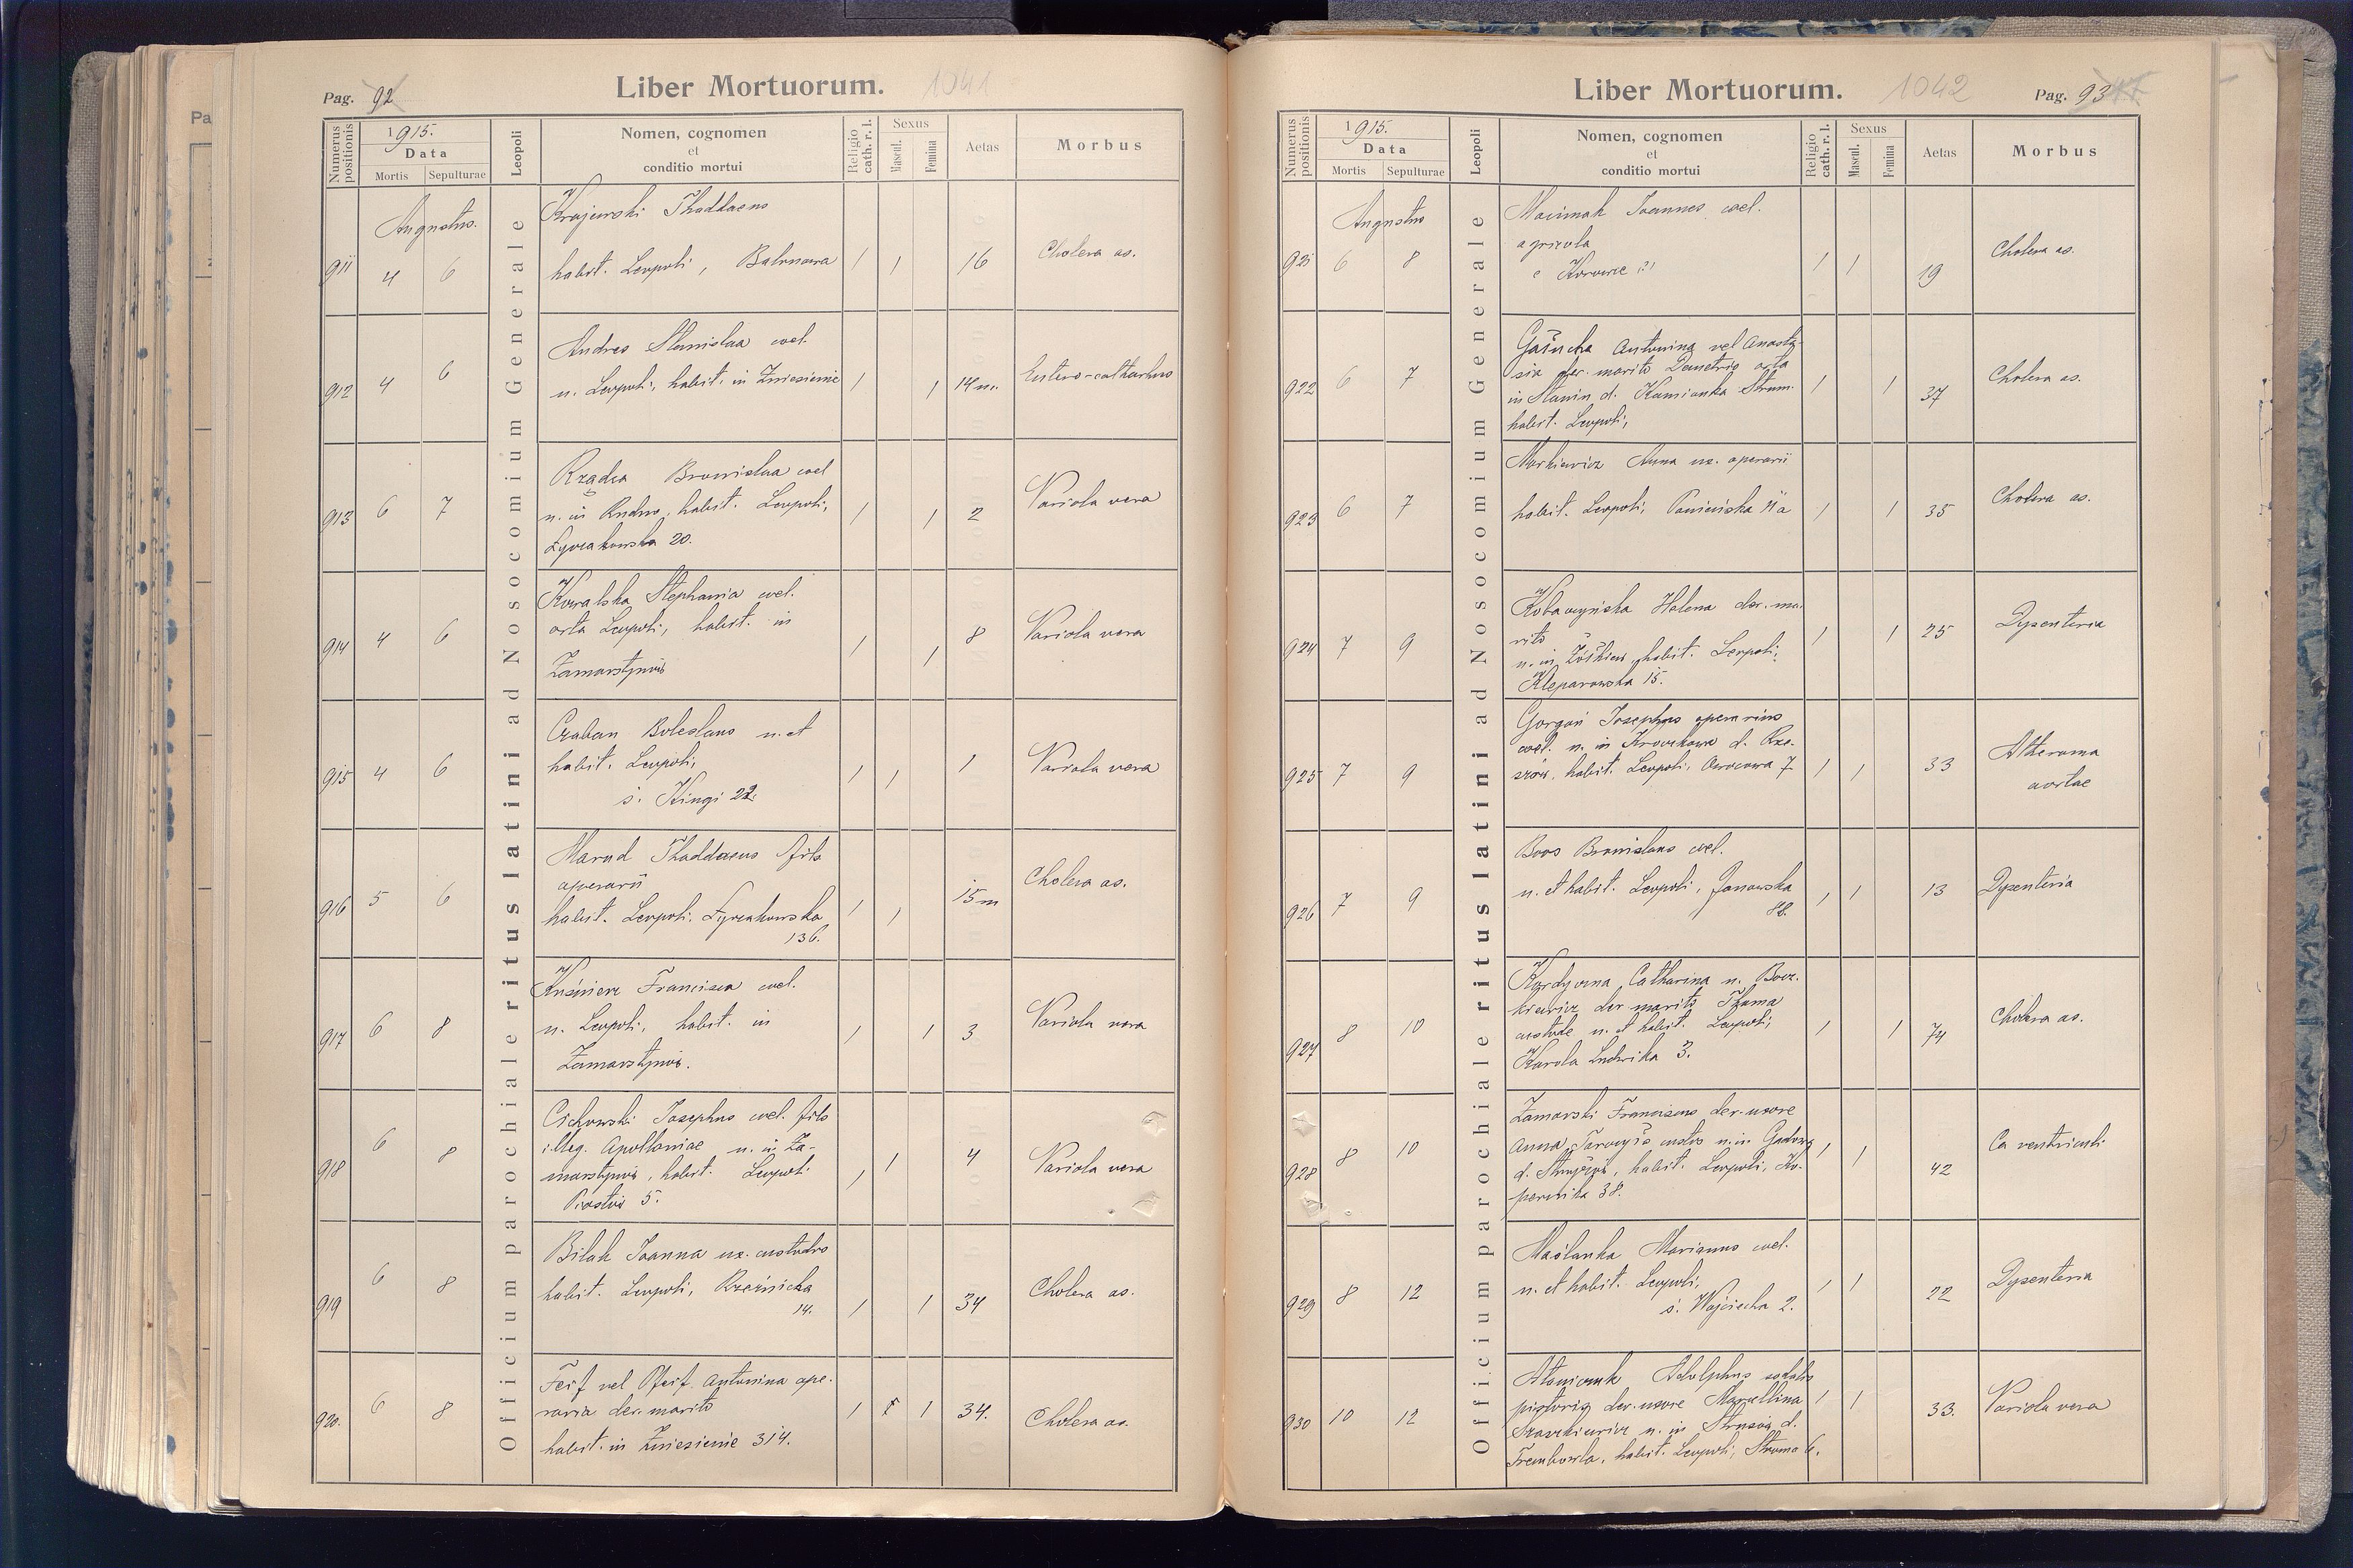 Pag. 92
Liber Mortuorum.
1041
Numerus positionis
1915.
Data
Mortis Sepulturae
Leopoli
Nomen, cognomen
et
conditio mortui
Religio cath. r. l.
Sexus
Mascul. Femina
Aetas
Morbus
Officium parochiale ritus latini ad Nosocomium Generale
Augustus.
Krajewski Thaddaeus
911 4 6 habit. Leopoli, Balonowa 1 1 16 Cholera as.
Andres Stanislaa cael.
912 4 6 n. Leopoli, habit. in Zniesienie 1 1 14 m. Entero-catharhus
Rządca Bronislaa cael
913 6 7 n. in Rudno, habit. Leopoli, 1 1 2 Variola vera
Łyczakowska 20.
Kowalska Stephania cael.
914 4 6 orta Leopoli, habit. in 1 1 8 Variola vera
Zamarstynów
Czaban Boleslaus n. et
915 4 6 habit. Leopoli, 1 1 1 Variola vera
ś. Kingi 22.
Marud Thaddaeus fils
operarii
916 5 6 habit. Leopoli, Łyczakowska 1 1 15 m Cholera as.
136.
Kuśnierz Francisca cael.
917 6 8 n. Leopoli, habit. in 1 1 3 Variola vera
Zamarstynów.
Cichowski Josephus cael. fils
illeg. Apolloniae n. in Za-
918 6 8 marstynów, habit. Leopoli 1 1 4 Variola vera
Piastów 5.
Bilak Joanna ux. custodis
919 6 8 habit. Leopoli, Rzeźnicka 1 1 34 Cholera as.
14.
Feif vel Pfeif Antonina ope-
920. 6 8 raria der. marito 1 1 34. Cholera as.
habit. in Zniesienie 314.
Liber Mortuorum.
1042
Pag. 93
Numerus positionis
1915.
Data
Mortis Sepulturae
Leopoli
Nomen, cognomen
et
conditio mortui
Religio cath. r. l.
Sexus
Mascul. Femina
Aetas
Morbus
Officium parochiale ritus latini ad Nosocomium Generale
Augustus
Joannes cael.
agricola
921 6 8 e 1 1 19 Cholera as.
Antonina vel Anasta-
sia der. marito Demetrio orta
922 6 7 in Stanin d. Kamionka Strum. 1 1 37 Cholera as.
habit. Leopoli,
Markiewicz Anna ux. operarii
923 6 7 habit. Leopoli, Panieńska 11 a 1 1 35 Cholera as.
Helena der. ma-
rito
924 7 9 n. in Żółkiew, habit. Leopoli, 1 1 25 Dysenteria
Kleparowska 15.
Gorgoń Josephus operarius
cael. n. in d. Rze-
925 7 9 szów, habit. Leopoli, Owocowa 7 1 1 33 Atheroma
aortae
Boos Bronislaus cael.
926 7 9 n. et habit. Leopoli, Janowska 1 1 13 Dysenteria
88.
Catharina n. Bocz-
kiewicz der. marito Thoma
927 8 10 custode n. et habit. Leopoli, 1 1 74 Cholera as.
Karola Ludwika 3.
Zamorski Franciscus der. uxore
Anna custos n. in
928 8 10 d. habit. Leopoli, Ko- 1 1 42 Ca ventriculi
pernika 38.
Maślanka Marianus cael.
929 8 12 n. et habit. Leopoli, 1 1 22 Dysenteria
ś. Wojciecha 2.
Adolphus sodalis
930 10 12 pistorig der. uxore Marcellina 1 1 33. Variola vera
n. in Strusów d.
Trembowla, habit. Leopoli, Stroma 6.